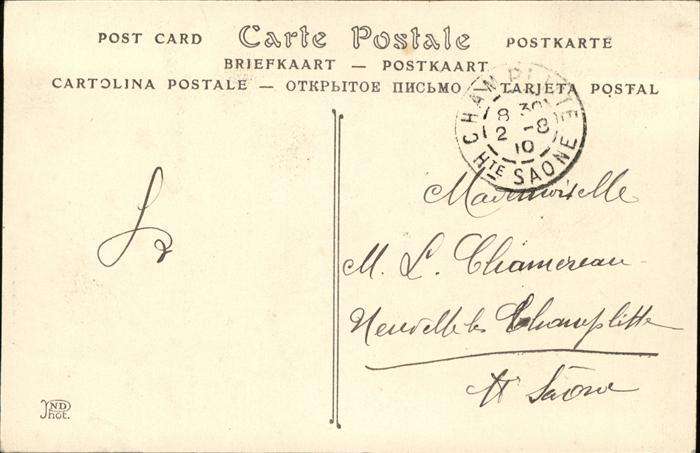 POST CARD Carte Postale POSTKARTE
BRIEFKAART — POSTKAART
CARTOLINA POSTALE — ОТКРЫТОЕ ПИСЬМО — TARJETA POSTAL
CHAMPLITTE
8 30
2 -8
10
HTE SAONE
Mademoiselle
M. L. Chamereau
Neuvelle les Champlitte
Hte Saône
ND
Phot.